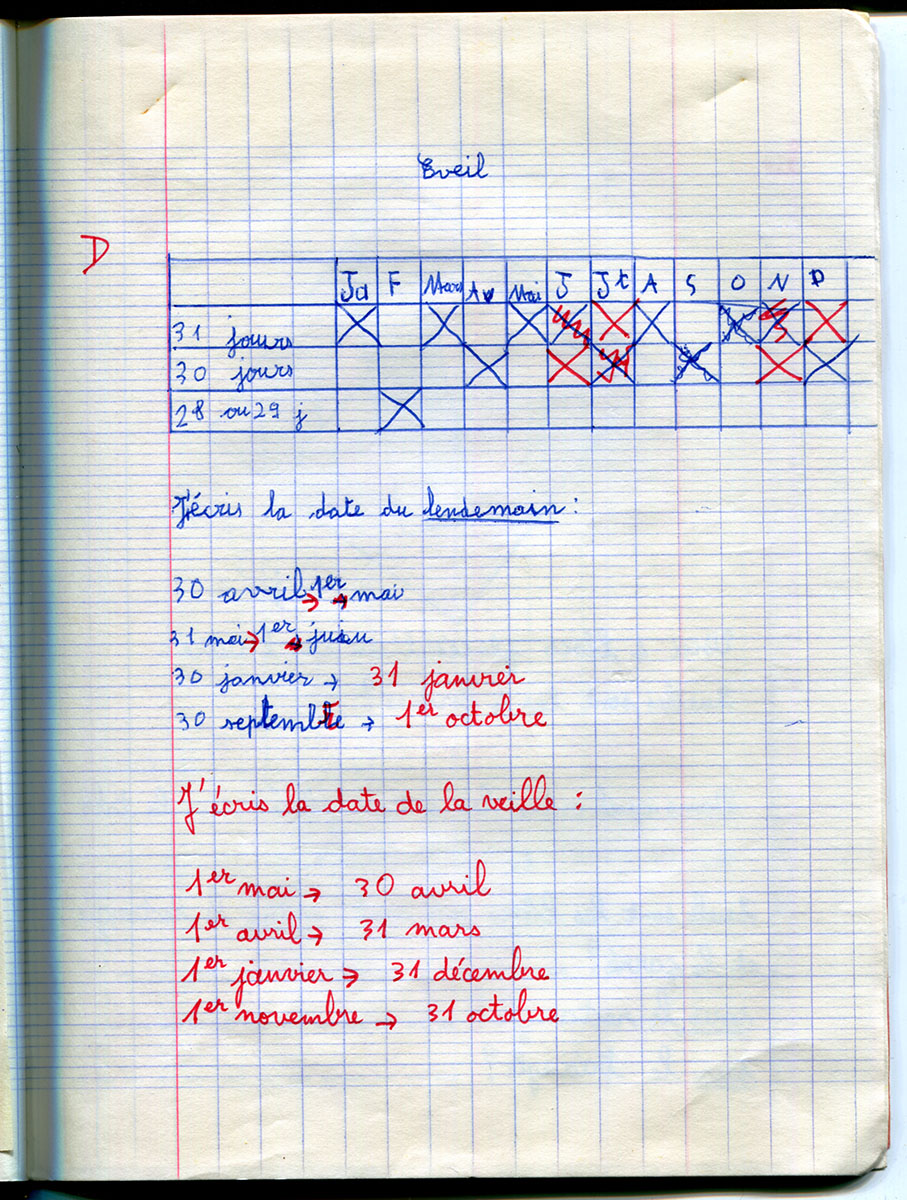 Eveil
D
Ja F Mars Av Mai J Jt A S O N D
31 jours
30 jours
28 ou 29 j
J'écris la date du lendemain :
30 avril → 1er → mai
31 mai → 1er juin
30 janvier → 31 janvier
30 septembre → 1er octobre
J'écris la date de la veille :
1er mai → 30 avril
1er avril → 31 mars
1er janvier → 31 décembre
1er novembre → 31 octobre